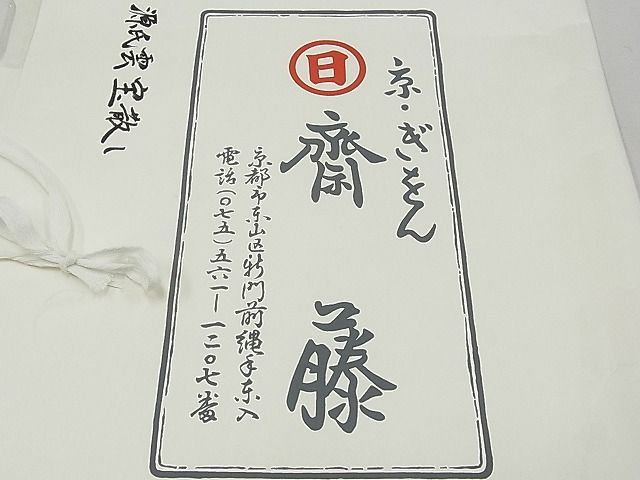 京・ぎをん
日
齋藤
京都市東山区新門前縄手東入
電話(〇七五)五六一―一二〇七番
源氏雲宝散し